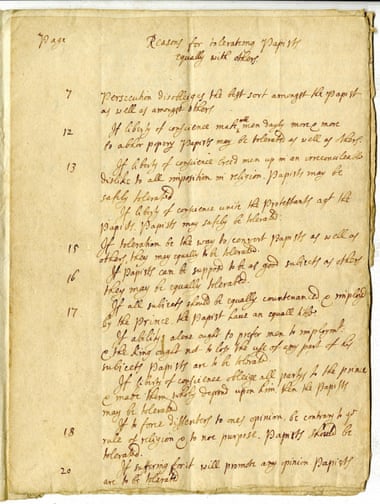 Page Reasons for tolerateing Papists
equally with others
7 Persecution disobleiges the best sort amongst the Papists
as well as amongst others
12 If liberty of conscience make men dayly more & more
to abhor popery Papists may be tolerated as well as others.
13 If liberty of conscience breed men up in an irreconcileable
dislike to all imposition in religion. Papists may be
safely tolerated
If liberty of conscience unite the Protestants agt the
Papists. Papists may safely be tolerated.
15 If toleration be the way to convert Papists as well as
others they may equally to be tolerated.
16 If Papists can be supposd to be as good subjects as others
they may be equally tolerated.
17 If all subjects should be equally countenanced & imployd
by the Prince. the Papist have an equall
If abilitys alone ought to prefer men to imploymt
& the King ought not to lose the use of any part of his
subjects Papists are to be tolerated
If liberty of conscience obleige all parties to the prince
& make them wholy depend upon him. then the Papists
may be tolerated
18 If to force dissenters to ones opinion, be contrary to ye
rule of religion & to noe purpose. Papists should be
tolerated.
20 If suffering for it will promote any opinion Papists
are to be tolerated